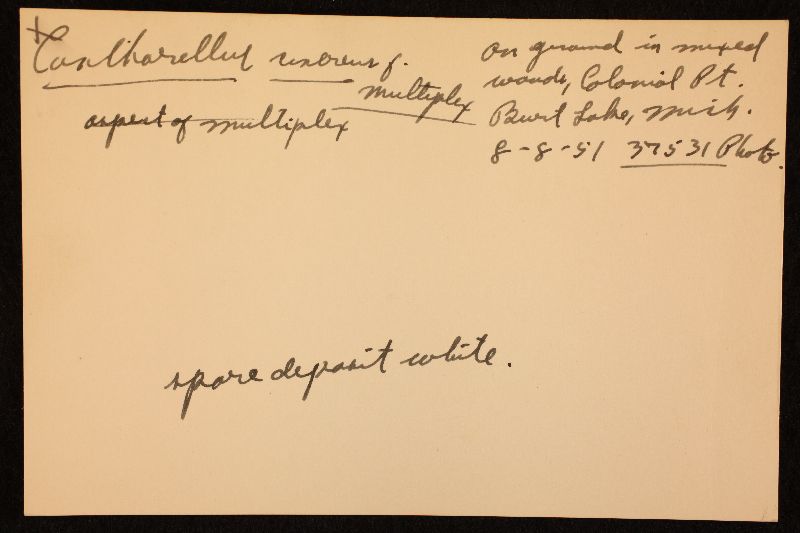 Cantharellus cinereus f.
multiplex
aspect of multiplex
on ground in mixed
woods, Colonial Pt.
Burt Lake, Mich.
8-8-51 37531 Photo.
spore deposit white.